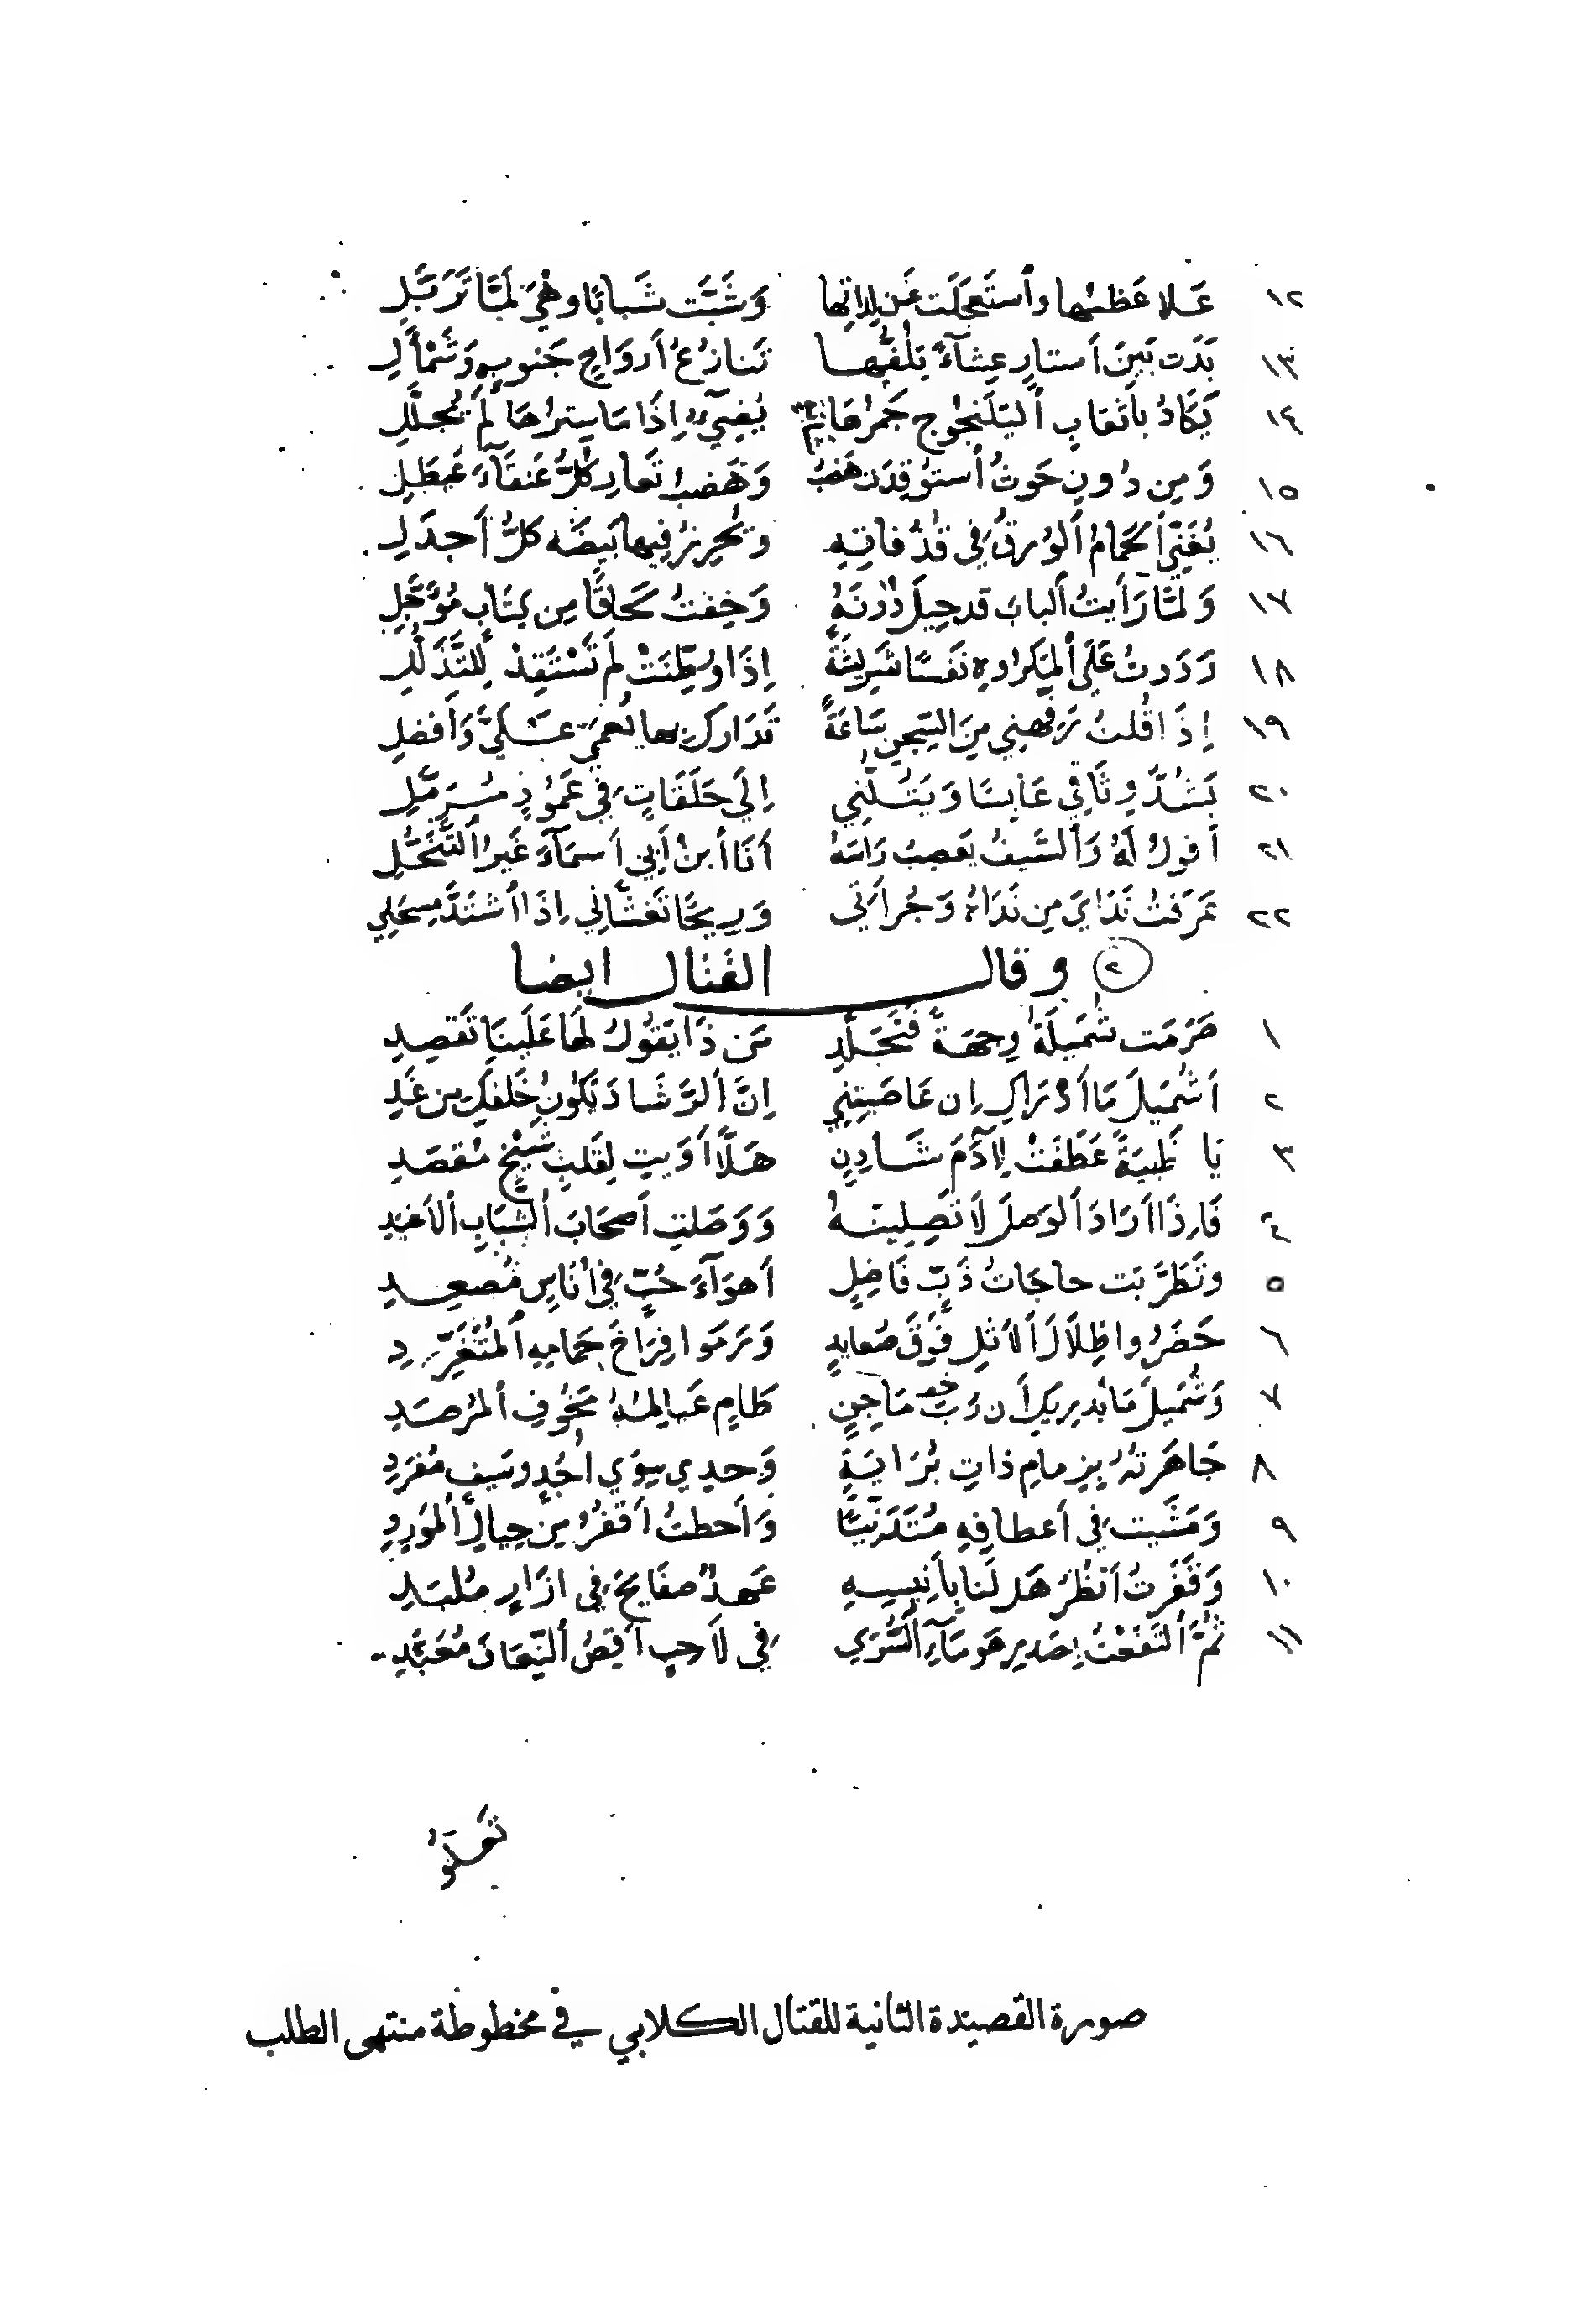 ١٢ عَلا عَظمُها وٱستَعجَلَت عَن لِداتِها وَشَبَّت شَبابًا وهْيَ لمَّا تَرَبَّلِ
١٣ بَدَت بَينَ أَستارٍ عِشآءً يَلُفُّها تَنازُعُ أَروَاحٍ جَنوبٍ وَشَمْأَلِ
١٤ يَكَادُ بأَثقابِ ٱليَلَنجُوجِ جَمرُهَا يُضِيٓءُ إذَا مَا سِترُهَا لَم يُجلَّلِ
١٥ وَمِن دُونِ حَوثُ ٱستُوقِدَت هَضبُ وَهَضبُ تَعارِ كُلُّ عَنقَآءَ عَيطَلِ
١٦ يُغَنِّي ٱلحَمَامُ ٱلوُرقُ في قُذُفاتِهِ ويُحرِزُ فيها بَيضَه كلُّ أَجدَلِ
١٧ وَلمَّا رَأَيتُ ٱلبابَ قد حِيلَ دُونَهُ وَخِفتُ لَحاقًا مِن كِتَابٍ مُؤَجَّلِ
١٨ رَدَدتُ عَلَى ٱلمَكرُوهِ نَفسًا شَرِيسَةً إذَا وُطِّنَتْ لم تَسْتَقِدْ لِلتَّذَلُّلِ
١٩ إذَا قُلتُ رَفِّهنِي مِنَ السِّجنِ سَاعَةً تَدَارَك بها نُعمَى عَلَيَّ وَأَفضِلِ
٢٠ يَشُدُّ وِثَاقِي عَابِسًا وَيَتُلُّنِي إلَى حَلَقَاتٍ في عَمُودٍ مُرَمَّلِ
٢١ أَقولُ لَهُ وَٱلسَّيفُ يَعصِبُ رَاسَهُ أَنَا ٱبنُ أَبِي أَسمَآءَ غَيرُ ٱلتَّنَحُّلِ
٢٢ عَرَفتُ نَدَايَ مِن نَدَاهُ وَجُرأَتي وَرِيحًا تَغَشَّانِي إذَا ٱشتَدَّ مِسحَلِي
٢ وقال القتال ايضا
١ صَرَمَت شُمَيلَةُ وِجهَةً فَتَجَلَّدِ مَن ذَا يَقُولُ لهَا عَلَينَا تَقصِدِ
٢ أَشُمَيلَ مَا أَدْرَاكِ إن عَاصَيتِنِي إنَّ ٱلرَّشَادَ يَكُونُ خَلفَكِ مِن غَدِ
٣ يَا ظَبيَةً عَطَفَتْ لِآدَمَ شَادِنٍ هَلَّا أَوَيتِ لِقَلبِ شَيْخٍ مُقصَدِ
٤ فَإِذَا أَرَادَ ٱلوَصلَ لَا تَصِلِينَهُ وَوَصَلتِ أَصحَابَ ٱلشَّبَابِ ٱلأَغيَدِ
٥ وتَطَرَّبَت حاجَاتُ ذَبٍّ قَافِلٍ أَهوَآءَ حُبٍّ في أُنَاسٍ مُصعِدِ
٦ حَضَرُوا ظِلَالَ ٱلأَثلِ فَوقَ صُعايدٍ وَرَمَوا فِرَاخَ حَمامِهِ ٱلمُتَغَرِّدِ
٧ وَشُمَيلَ مَا يُدرِيكِ أَن رُبَّ مَاجِنٍ طَامٍ عَيالِمُهُ مَخُوفِ ٱلمَرصَدِ
٨ جَاهَرتُهُ بِزِمامِ ذاتِ بُرَايَةٍ وَحدِي سِوَى أُجُدٍ وسَيفٍ مُفرَدِ
٩ وَمَشَيت في أَعطافِهِ مُتَدَنِّيًا وَأَحطتُ أَقفُرُ مِن حِيالِ ٱلمَورِدِ
١٠ وَقَفَرتُ أَنظُرُ هَل لَنا بِأَنِيسِهِ عَهدٌ صفَايِحَ في ازَارٍ مُلبَدِ
١١ ثُمَّ ٱلتَفَعْتُ بِصَدرِ هَوجَآءِ ٱلسُّرَى في لَاحِبٍ أَقِصُ ٱلنِّعَافَ مُعَبَّدِ
صورة القصيدة الثانية للقتال الكلابي في مخطوطة منتهى الطلب